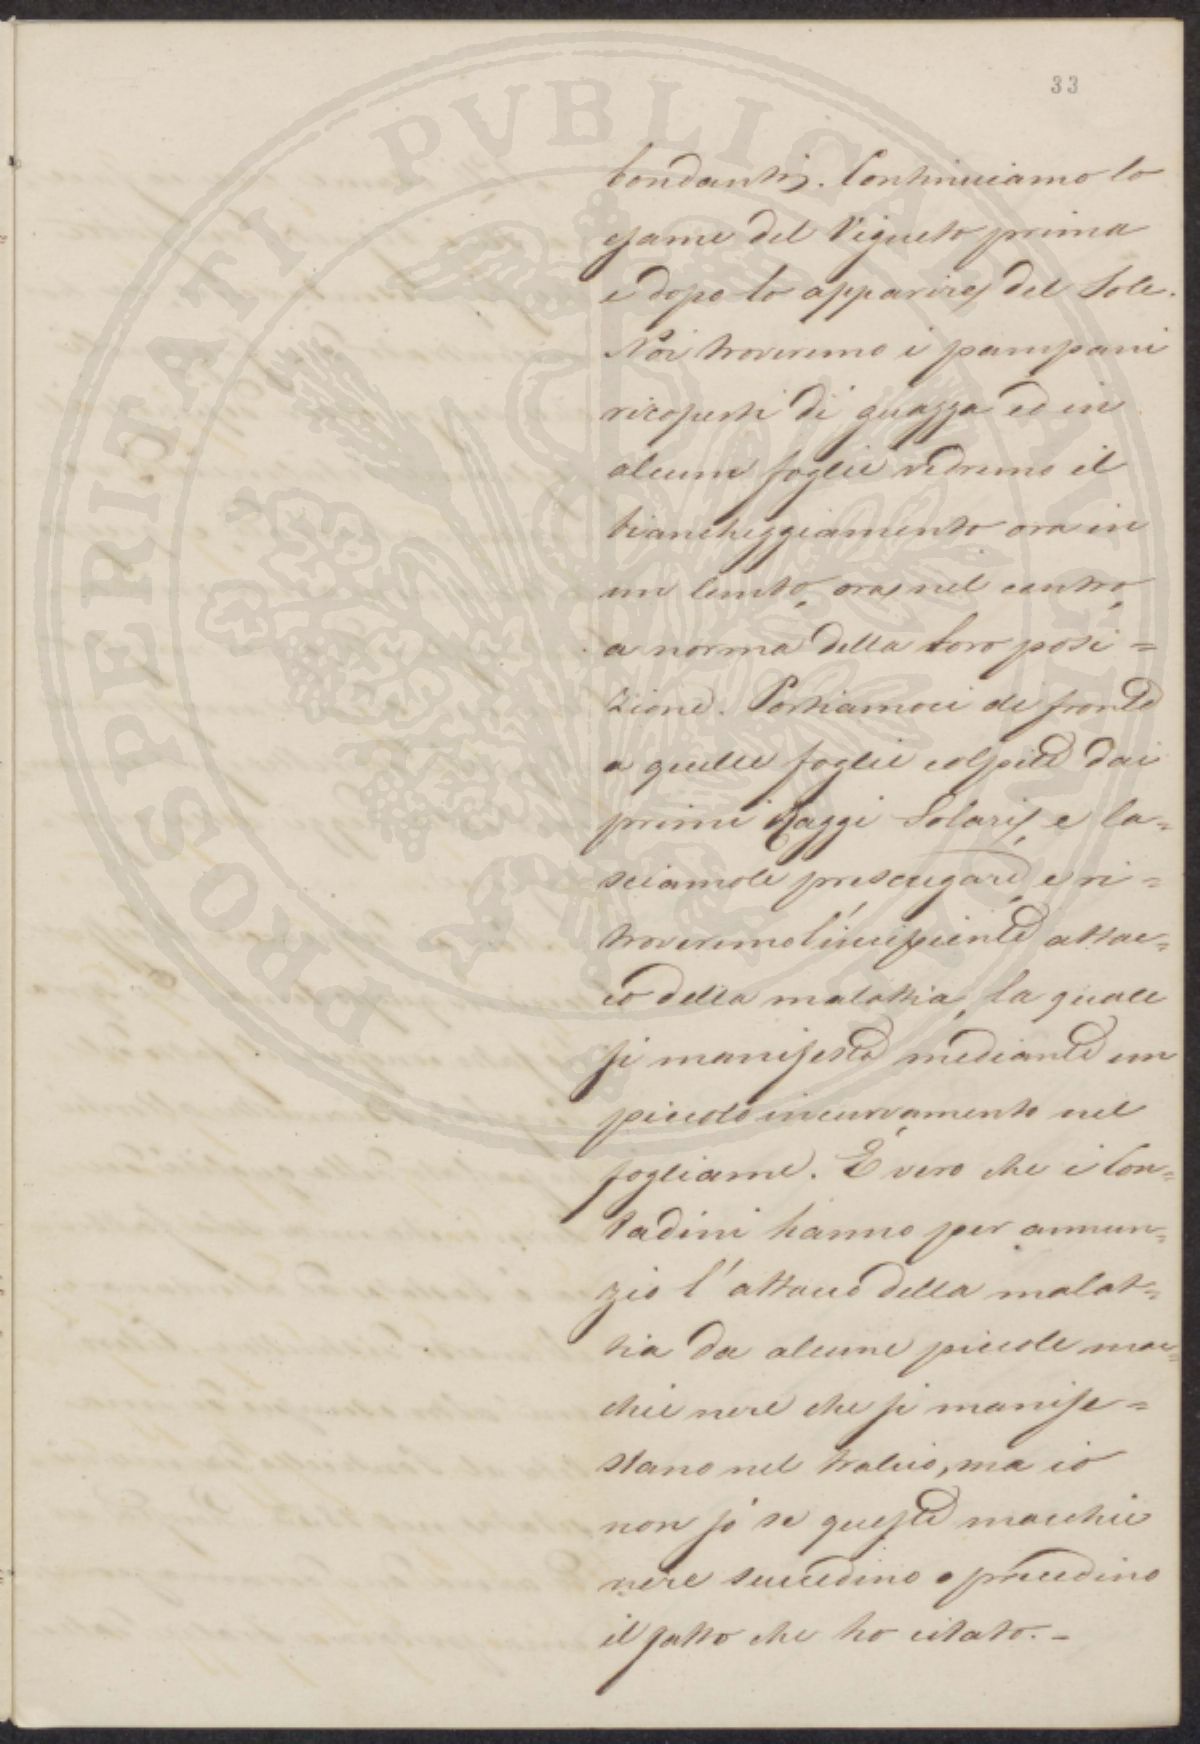 33
PROSPERITATI PVBLICAE AVGENDAE
tondanti. Continuiamo lo
esame del Vigneto prima
e dopo lo apparire del Sole.
Noi troveremo i pampani
ricoperti di guazza ed in
alcune foglie vedremo il
biancheggiamento ora in
un lembo, ora nel centro,
a norma della loro posi=
zione. Portiamoci di fronte
a quelle foglie colpite dai
primi Raggi Solari, e la=
sciamole prescugare, e ri=
troveremo l'incipiente attac=
co della malattia, la quale
si manifesta mediante un
piccolo incurvamento nel
fogliame. È vero che i Con=
tadini hanno per annun=
zio l'attacco della malat=
tia da alcune piccole mac=
chie nere che si manife=
stano nel tralcio, ma io
non sò se queste macchie
nere succedino o precedino
il fatto che ho citato. –